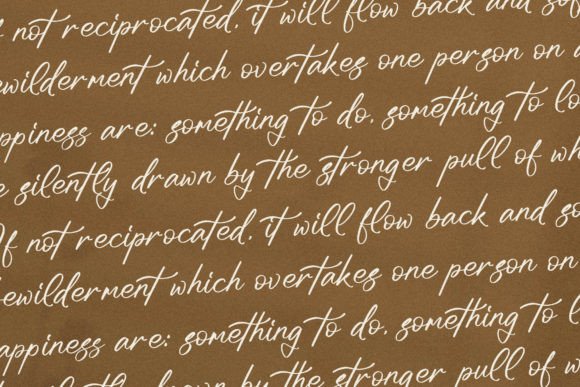 f not reciprocated, it will flow back and sof
ewilderment which overtakes one person on
appiness are: something to do, something to lo
e silently drawn by the stronger pull of wh
If not reciprocated, it will flow back and so
bewilderment which overtakes one person on
happiness are: something to do, something to l
silently drawn by the stronger pull of w